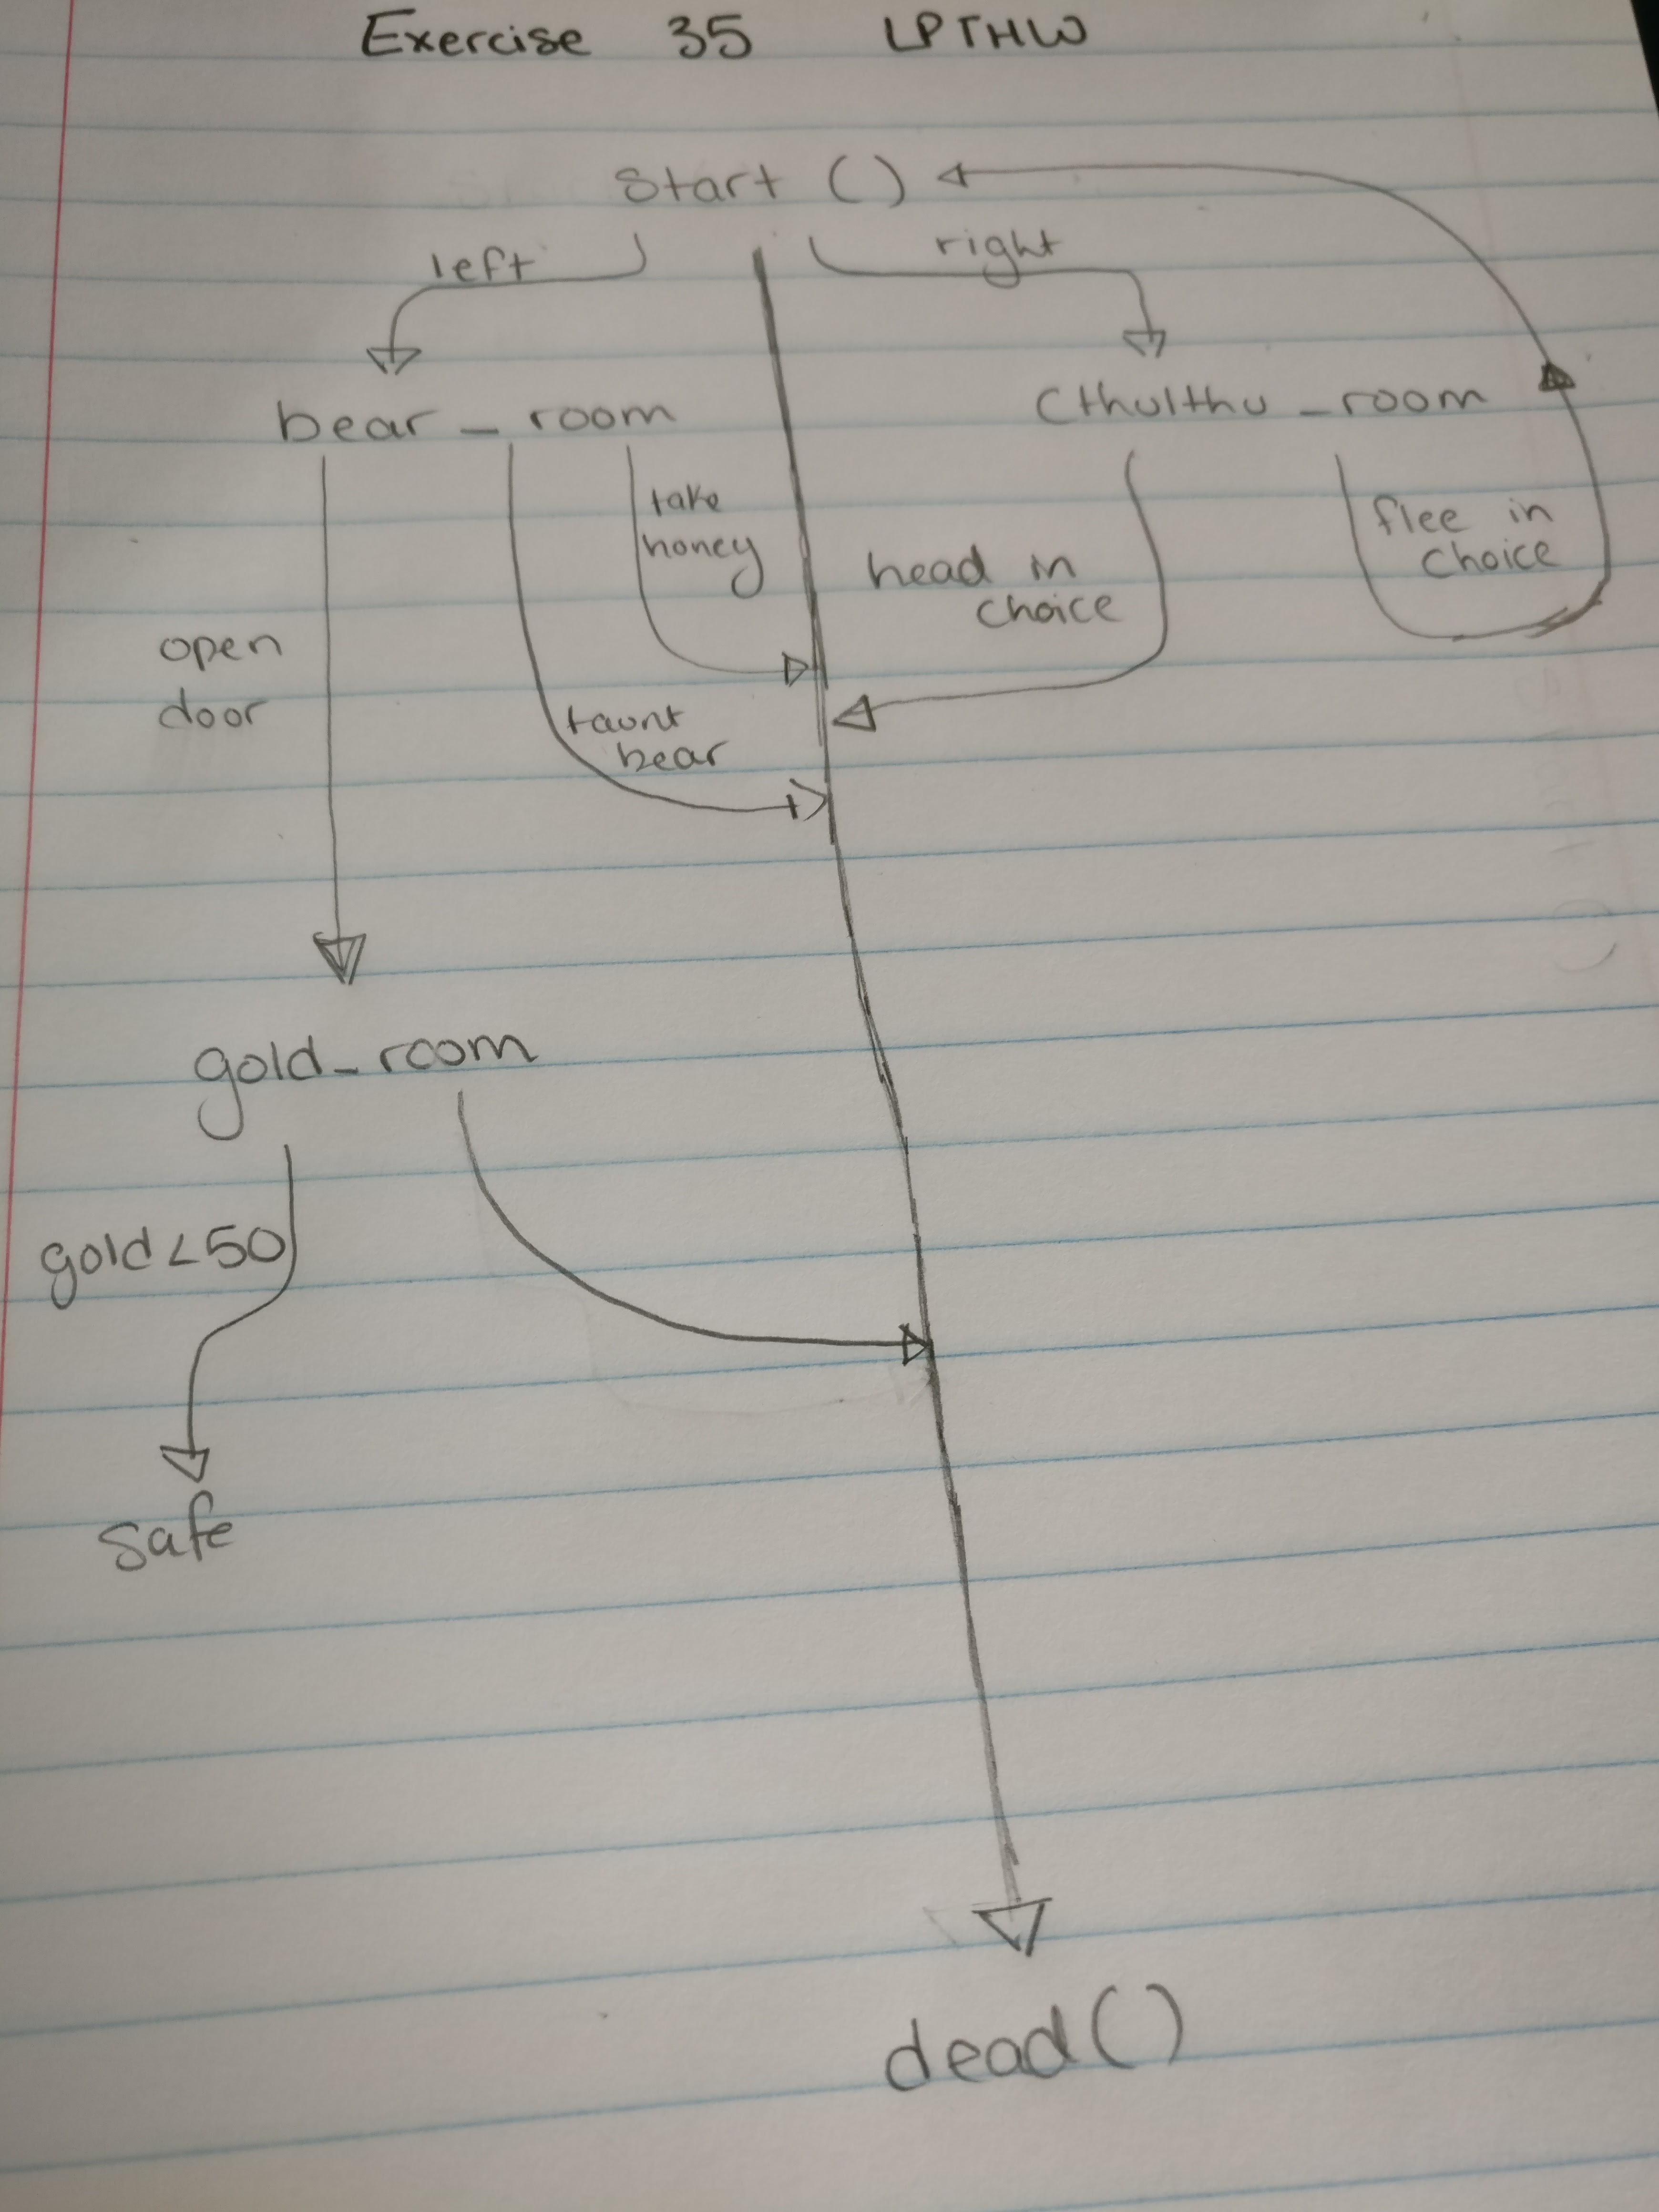 Exercise 35 LPTHW
Start ()
left
right
bear_room
Cthulthu_room
take
honey
flee in
choice
head in
choice
open
door
taunt
bear
gold_room
gold<50
safe
dead()